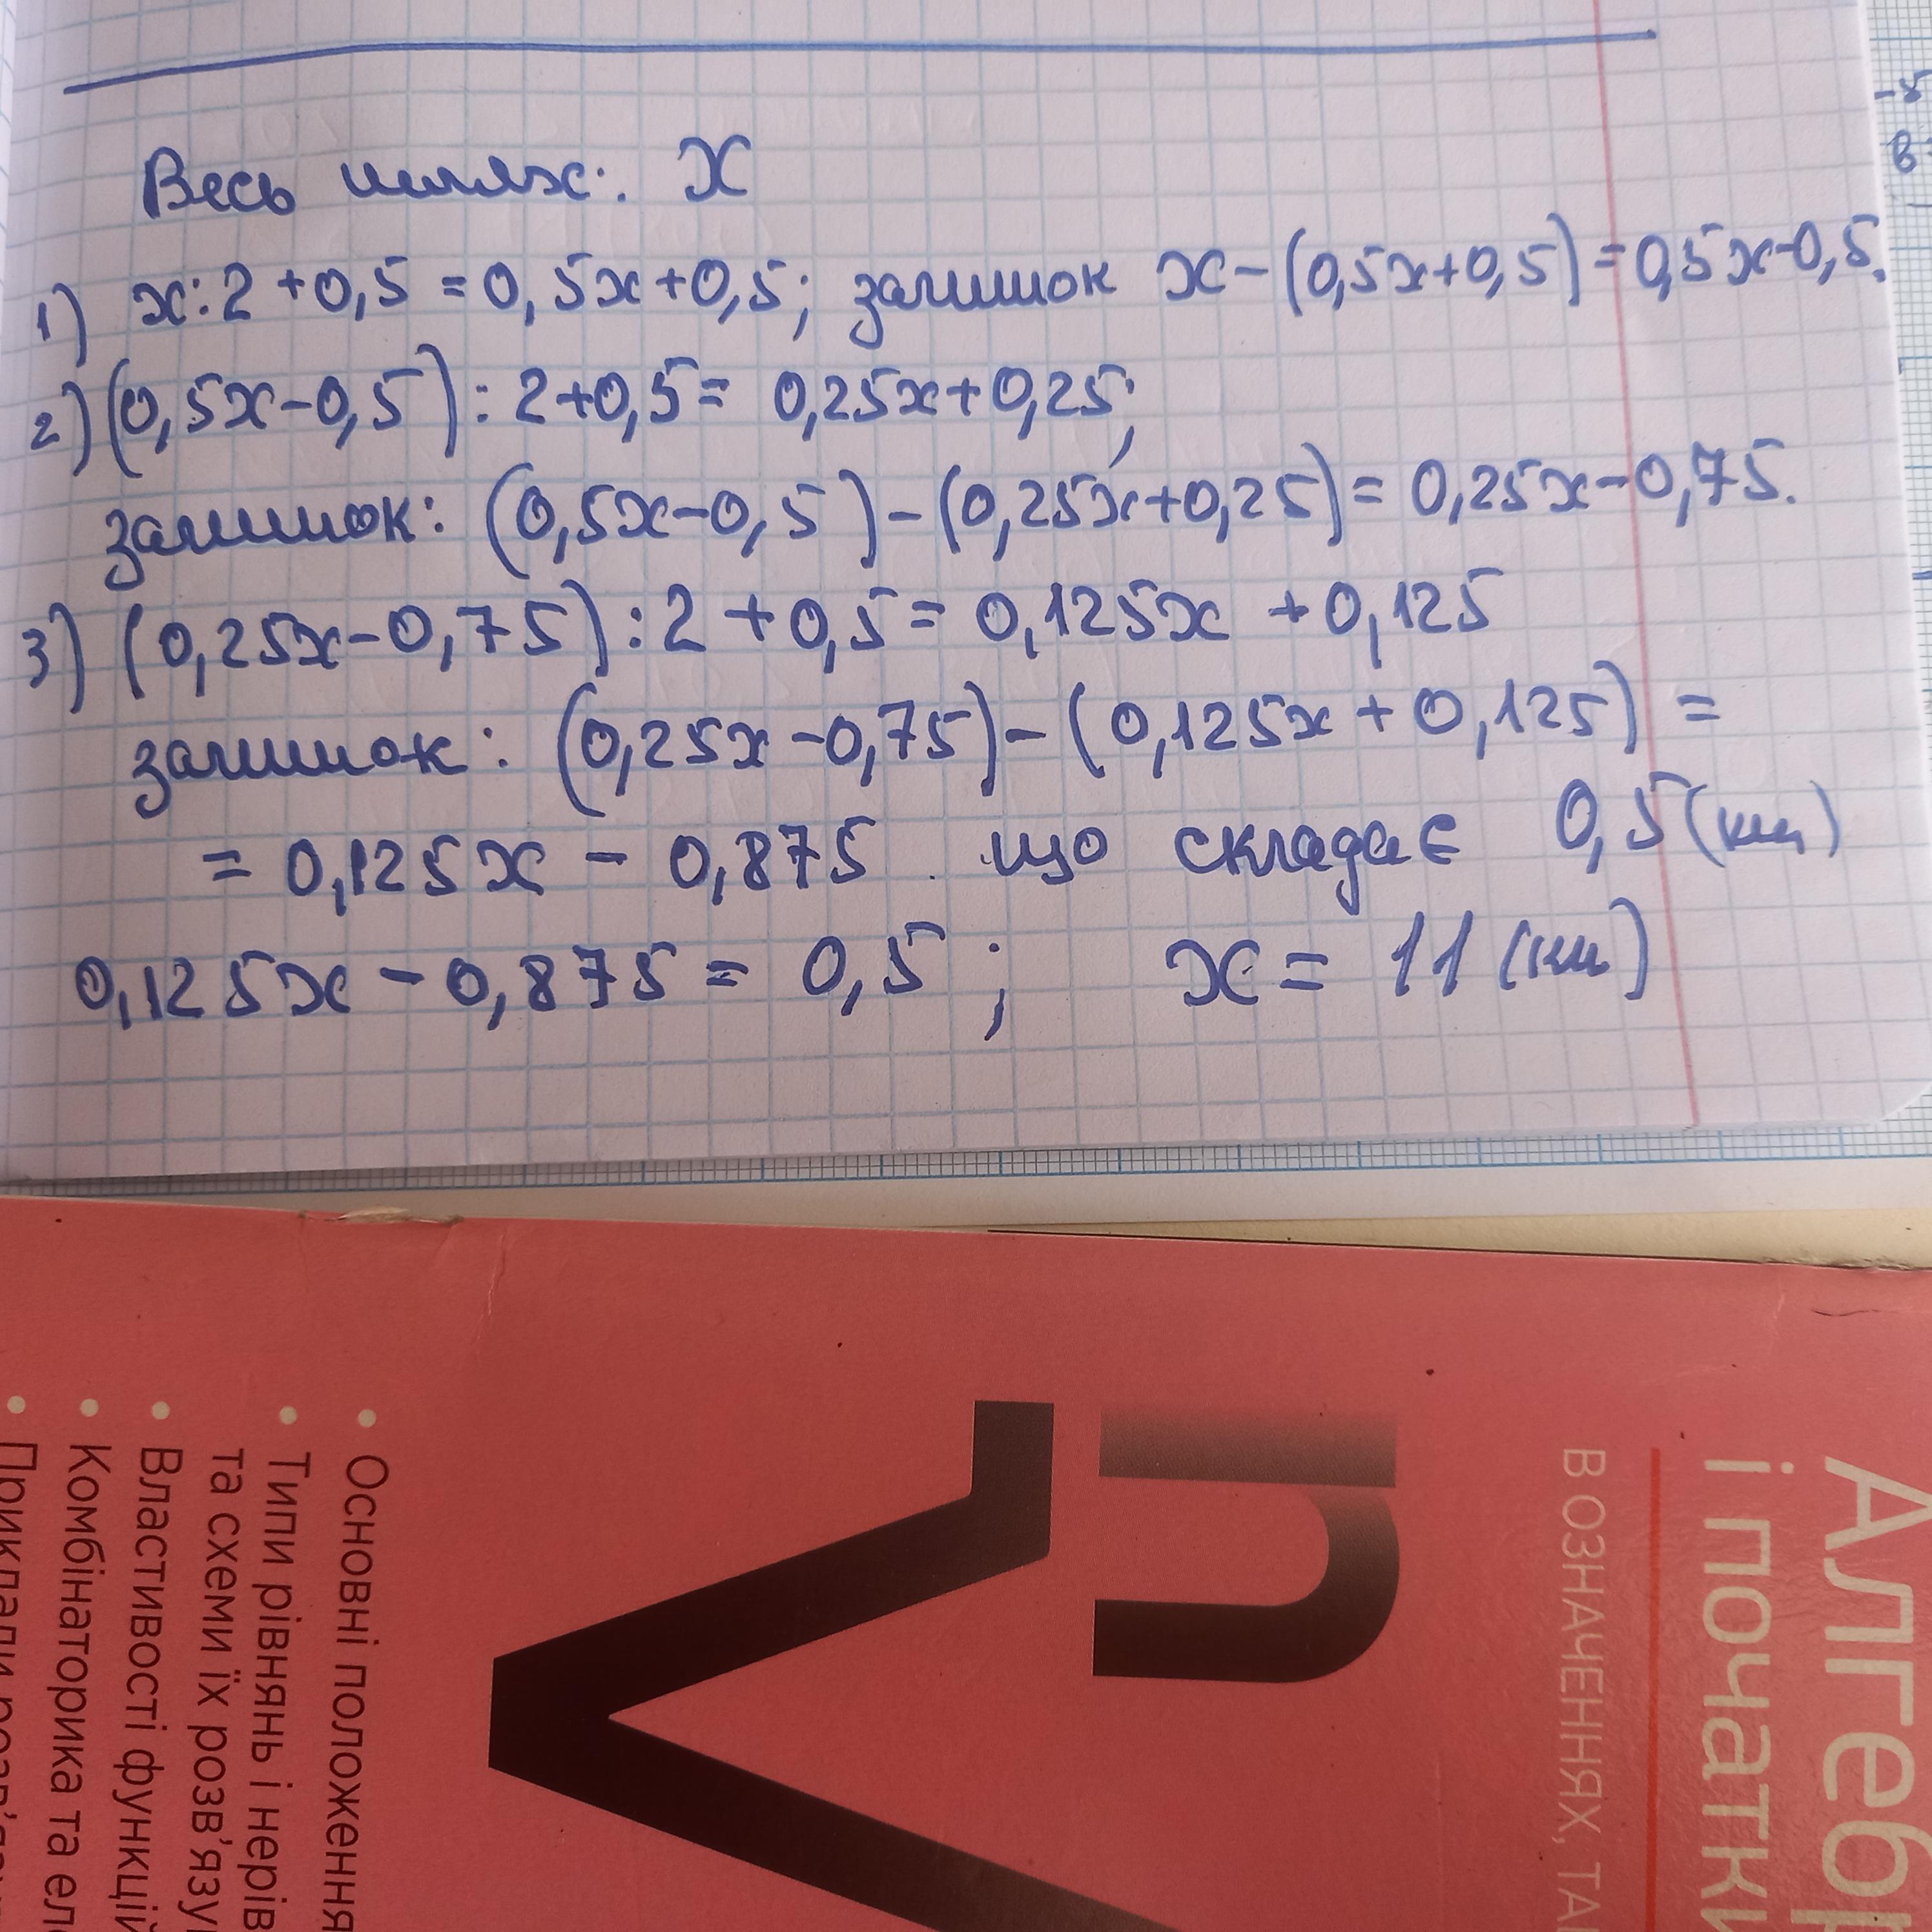 Весь шлях: x
1) x:2+0,5=0,5x+0,5; залишок x-(0,5x+0,5)=0,5x-0,5.
2) (0,5x-0,5):2+0,5= 0,25x+0,25;
залишок: (0,5x-0,5)-(0,25x+0,25)=0,25x-0,75.
3) (0,25x-0,75):2+0,5=0,125x+0,125
залишок: (0,25x-0,75)-(0,125x+0,125)=
=0,125x-0,875. що складає 0,5(км)
0,125x-0,875=0,5; x=11(км)
-5
в
Алгебр
і початки
В ОЗНАЧЕННЯХ, ТА
in
• Основні положення
• Типи рівнянь і нерів
та схеми їх розв'язу
• Властивості функцій
• Комбінаторика та еле
• Приклади розв'яз